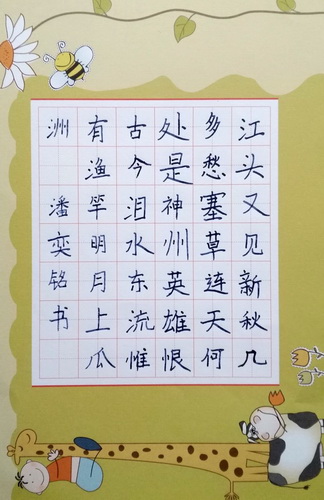 江头又见新秋几
多愁塞草连天何
处是神州英雄恨
古今泪水东流惟
有渔竿明月上瓜
洲 潘奕铭书